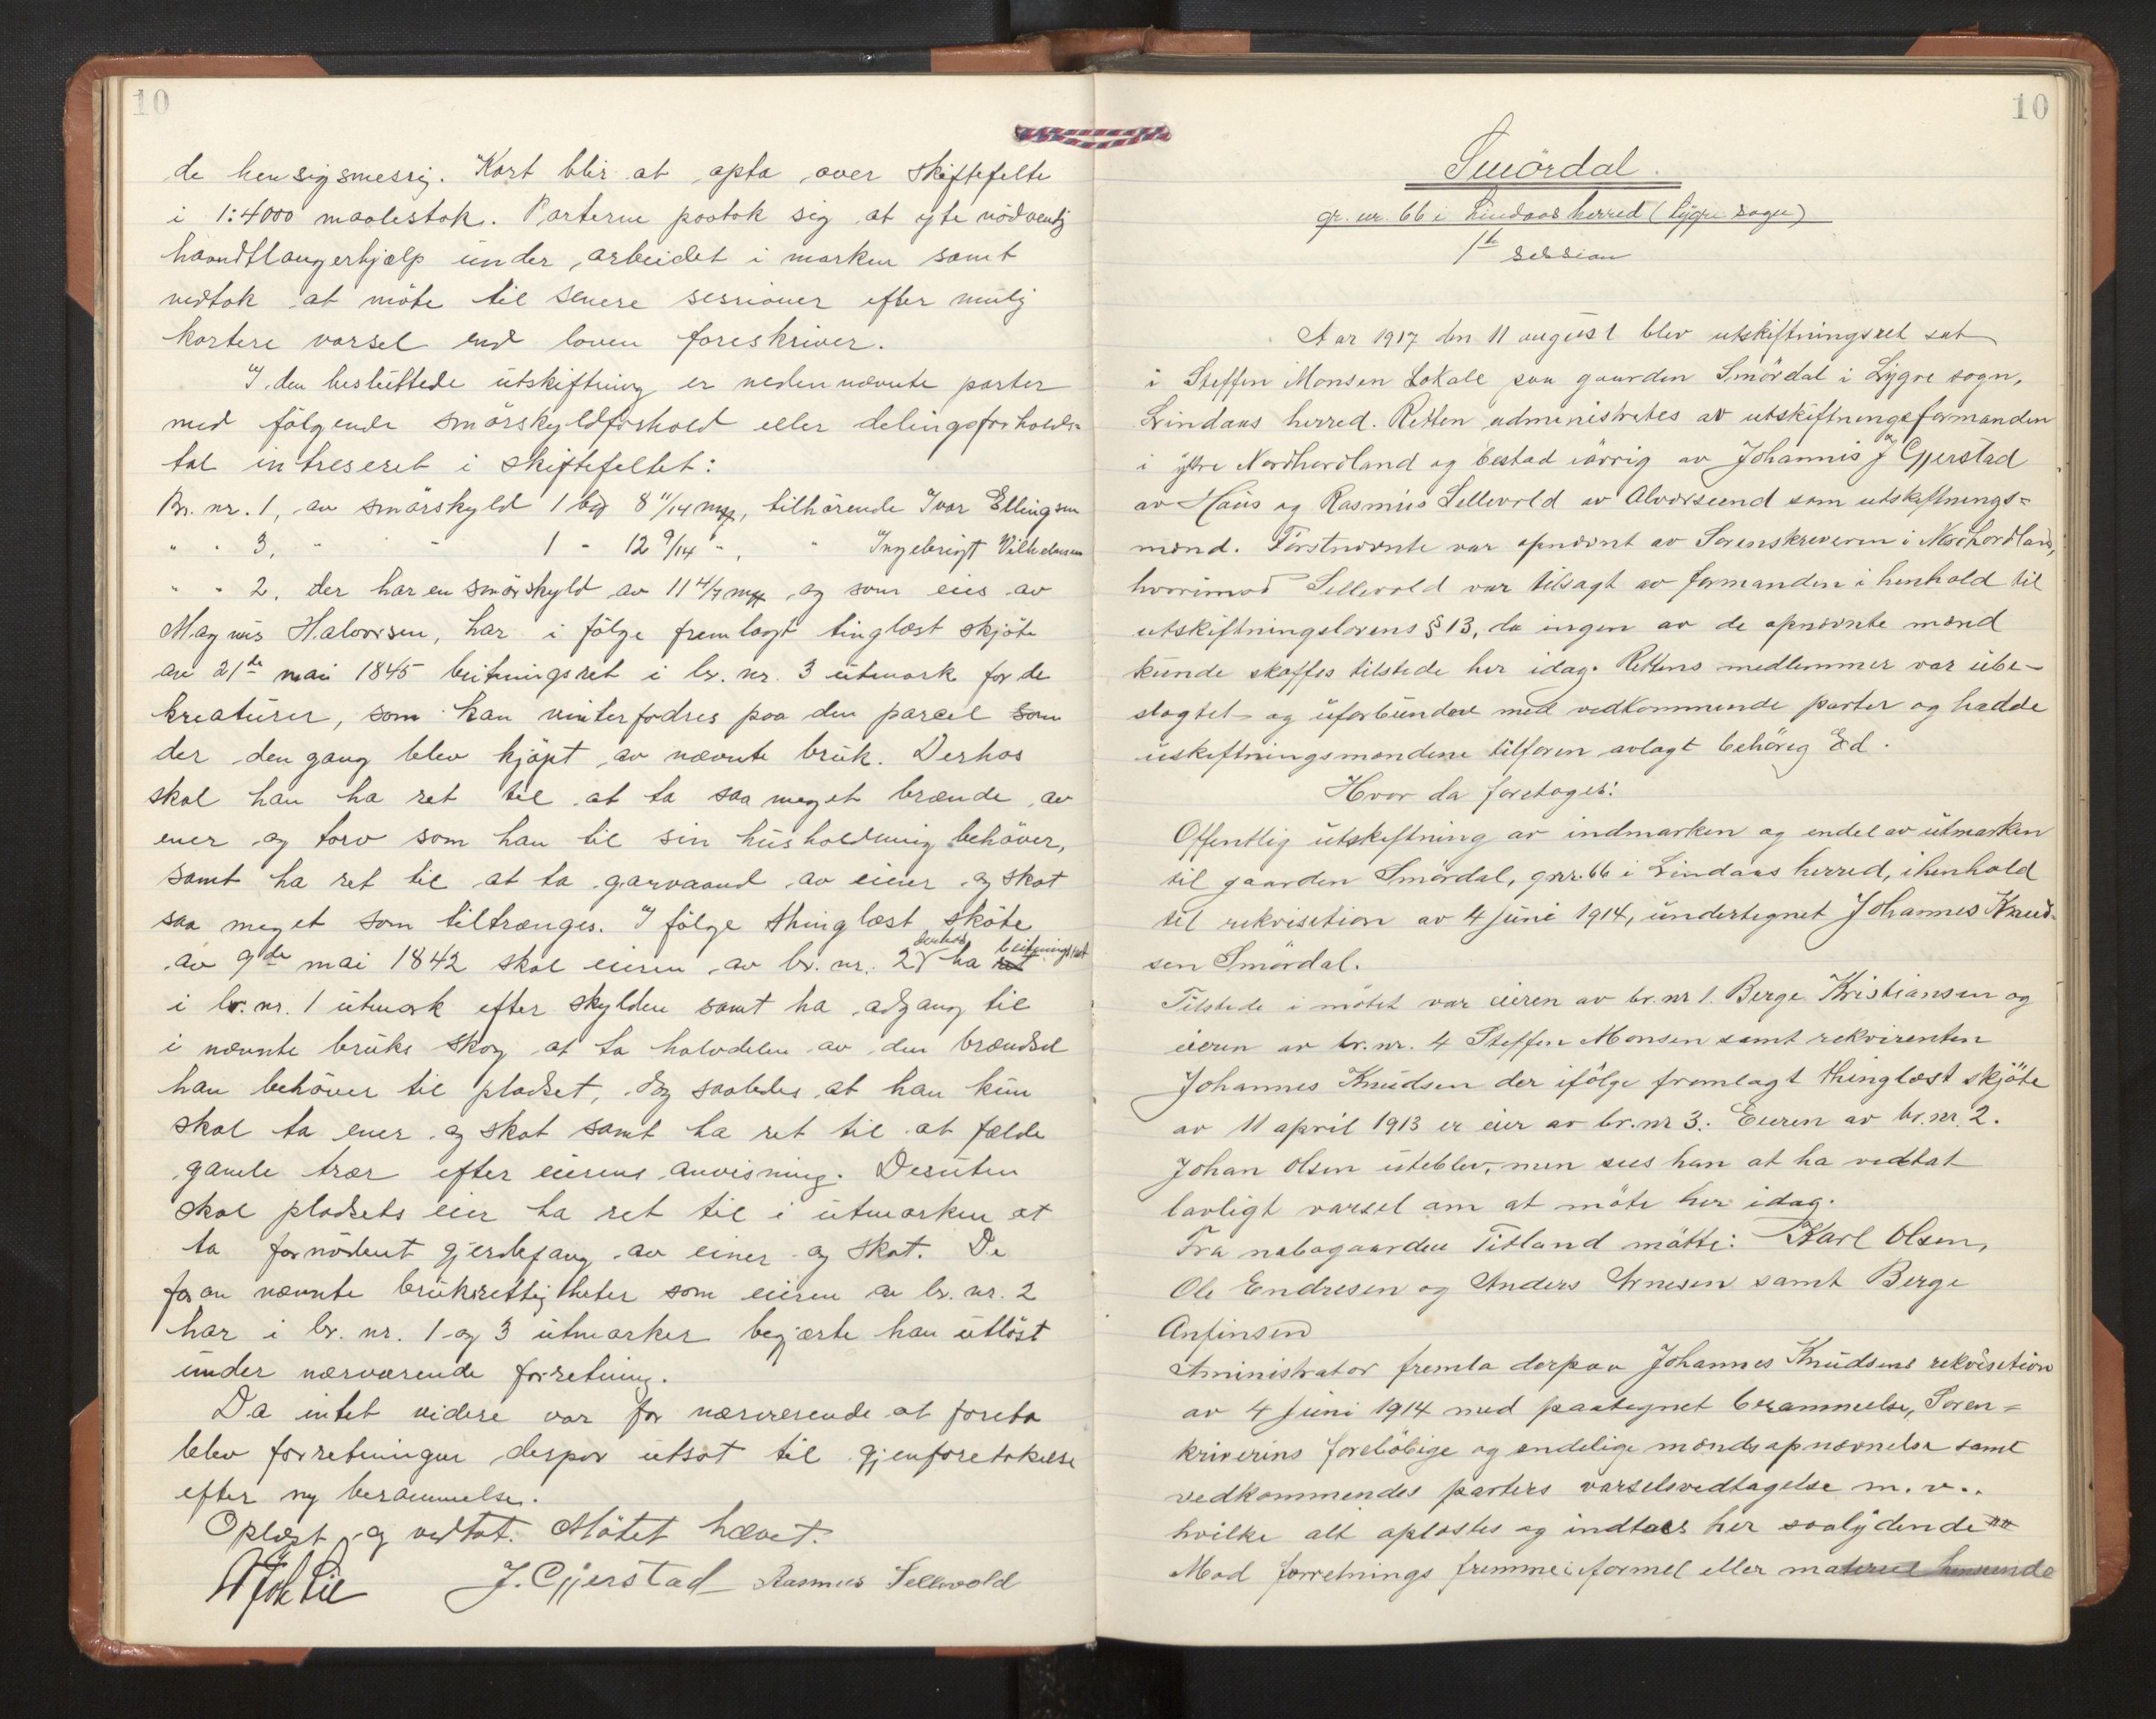 10
de hensigsmessig. Kart blir at opta over skiftefelte
i 1:4000 maalestok. Parterne paatok sig at yte nödvendig
haandtlangerhjælp under arbeidet i marken samt
vedtok at möte til senere sessioner efter mulig
kortere varsel end loven foreskriver.
I den besluttede utskiftning er nedennævnte parter
med fölgende smörskyldforhold eller delingsforholds-
tal intreseret i skiftefeltet:
Br. nr. 1, av smörskyld 1 bp 8 11/14 mp, tilhörende Ivar Ellingsen
" " 3, " " 1 " 12 9/14 ", " Ingebrigt Vilhelmsen
" " 2, der har en smörskyld av 11 4/7 mp og som eies av
Magnus Halvorsen, har i fölge fremlagt tinglæst skjöte
av 21de mai 1845 beitningsret i br. nr. 3 utmark for de
kreaturer, som kan vinterfodres paa den parcel som
der den gang blev kjöpt av nævnte bruk. Derhos
skal han ha ret til at ta saa meget brænde av
ener og torv som han til sin husholdning behöver,
samt ha ret til at ta garvaand av einer og skat
saa meget som tiltrænges. I fölge thinglæst sköte
av 9de mai 1842 skal eieren av br. nr. 2 derhos ha beitningsret
i br. nr. 1 utmark efter skylden samt ha adgang til
i nævnte bruks skog at ta halvdelen av den brændsel
han behöver til pladset, dog saaledes at han kun
skal ta ener og skat samt ha ret til at fælde
gamle trær efter eierens anvisning. Desuten
skal pladsets eier ha ret til i utmarken at
ta fornödent gjerdefang av einer og skat. De
foran nævnte bruksrettigheter som eieren av br. nr. 2
har i br. nr. 1 og 3 utmarker begjærte han utlöst
under nærværende forretning.
Da intet videre var for nærværende at foreta
blev forretningen derpaa utsat til gjenforetakelse
efter ny berammelse.
Oplæst og vedtat. Mötet hævet.
J. Gjerstad Rasmus Sellevold
10
Smördal.
gr. nr. 66 i Lindaas herred (Lygre sogn)
1te session
Aar 1917 den 11 august blev utskiftningsret sat
i Steffen Monsen Lokale paa gaarden Smördal i Lygre sogn,
Lindaas herred. Retten administrates av utskiftningsformanden
i ytre Nordhordland og bestod iövrig av Johannis J Gjerstad
av Haus og Rasmus Sellevold av Alversund som utskiftnings=
mænd. Förstnævnte var opnævnt av Sorenskreveren i Nordhordland,
hvorimod Sellevold var tilsagt av formanden i henhold til
utskiftningslovens § 13, da ingen av de opnævnte mænd
kunde skaffes tilstede her idag. Rettens medlemmer var ube-
slagtet og uforbunden med vedkommende parter og hadde
uskiftningsmændene tilforn avlagt behörig Ed.
Hvor da foretoges:
Offentlig utskiftning av indmarken og endel av utmarken
til gaarden Smördal, gnr. 66 i Lindaas herred, ihenhold
til rekvisition av 4 juni 1914, undertegnet Johannes Knud-
sen Smördal.
Tilstede i mötet var eieren av br. nr 1. Berge Kristiansen og
eieren av br. nr. 4 Steffen Monsen samt rekvirenten
Johannes Knudsen der ifölge fremlagt thinglæst skjöte
av 11 april 1913 er eier av br. nr 3. Eieren av br. nr. 2.
Johan Olsen uteblev, men sees han at ha vedtat
lovligt varsel om at möte her idag.
Fra nabogaarden Titland mötte: Karl Olsen,
Ole Endresen og Anders Arnesen samt Berge
Anfinsen
Aministrator fremla derpaa Johannes Knudsens rekvisition
av 4 juni 1914 med paategnet berammelse, Soren=
kriverens forelöbige og endelige mændsopnævnelse samt
vedkommendes parters varselsvedtagelse m. v..
hvilke alt oplæstes og indtaes her saalydende
Mod forretnings fremme i formel eller materiel henseende